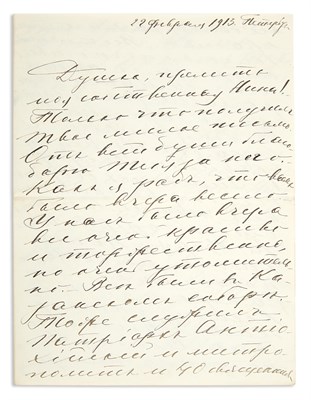 22 февраля 1913. Петерб.
Душка, прелесть
моя
Только что получила
твое милое письмо
От всей души благо-
дарю Тебя за него.
Какъ я рада, что вамъ
было вчера весело.
У насъ было вчера
все очень красиво
и торжественно,
но очень утомитель-
но. Все были въ Ка-
занскомъ соборѣ.
Тоже служилъ
Патріархъ Антіо-
хійскій и митро-
политъ и 40 священник